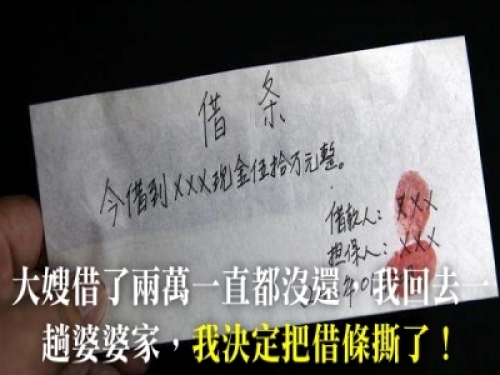 借条
今借到XXX现金伍拾万元整。
借款人：XXX
担保人：XXX
年
大嫂借了兩萬一直都沒還，我回去一
趟婆婆家，我決定把借條撕了！